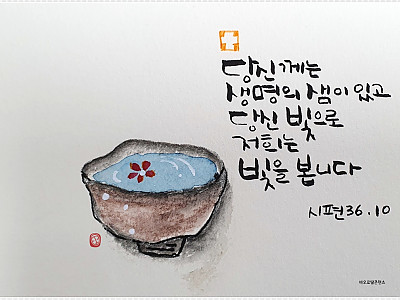 당신께는
생명의 샘이 있고
당신 빛으로
저희는
빛을 본니다
시편36.10